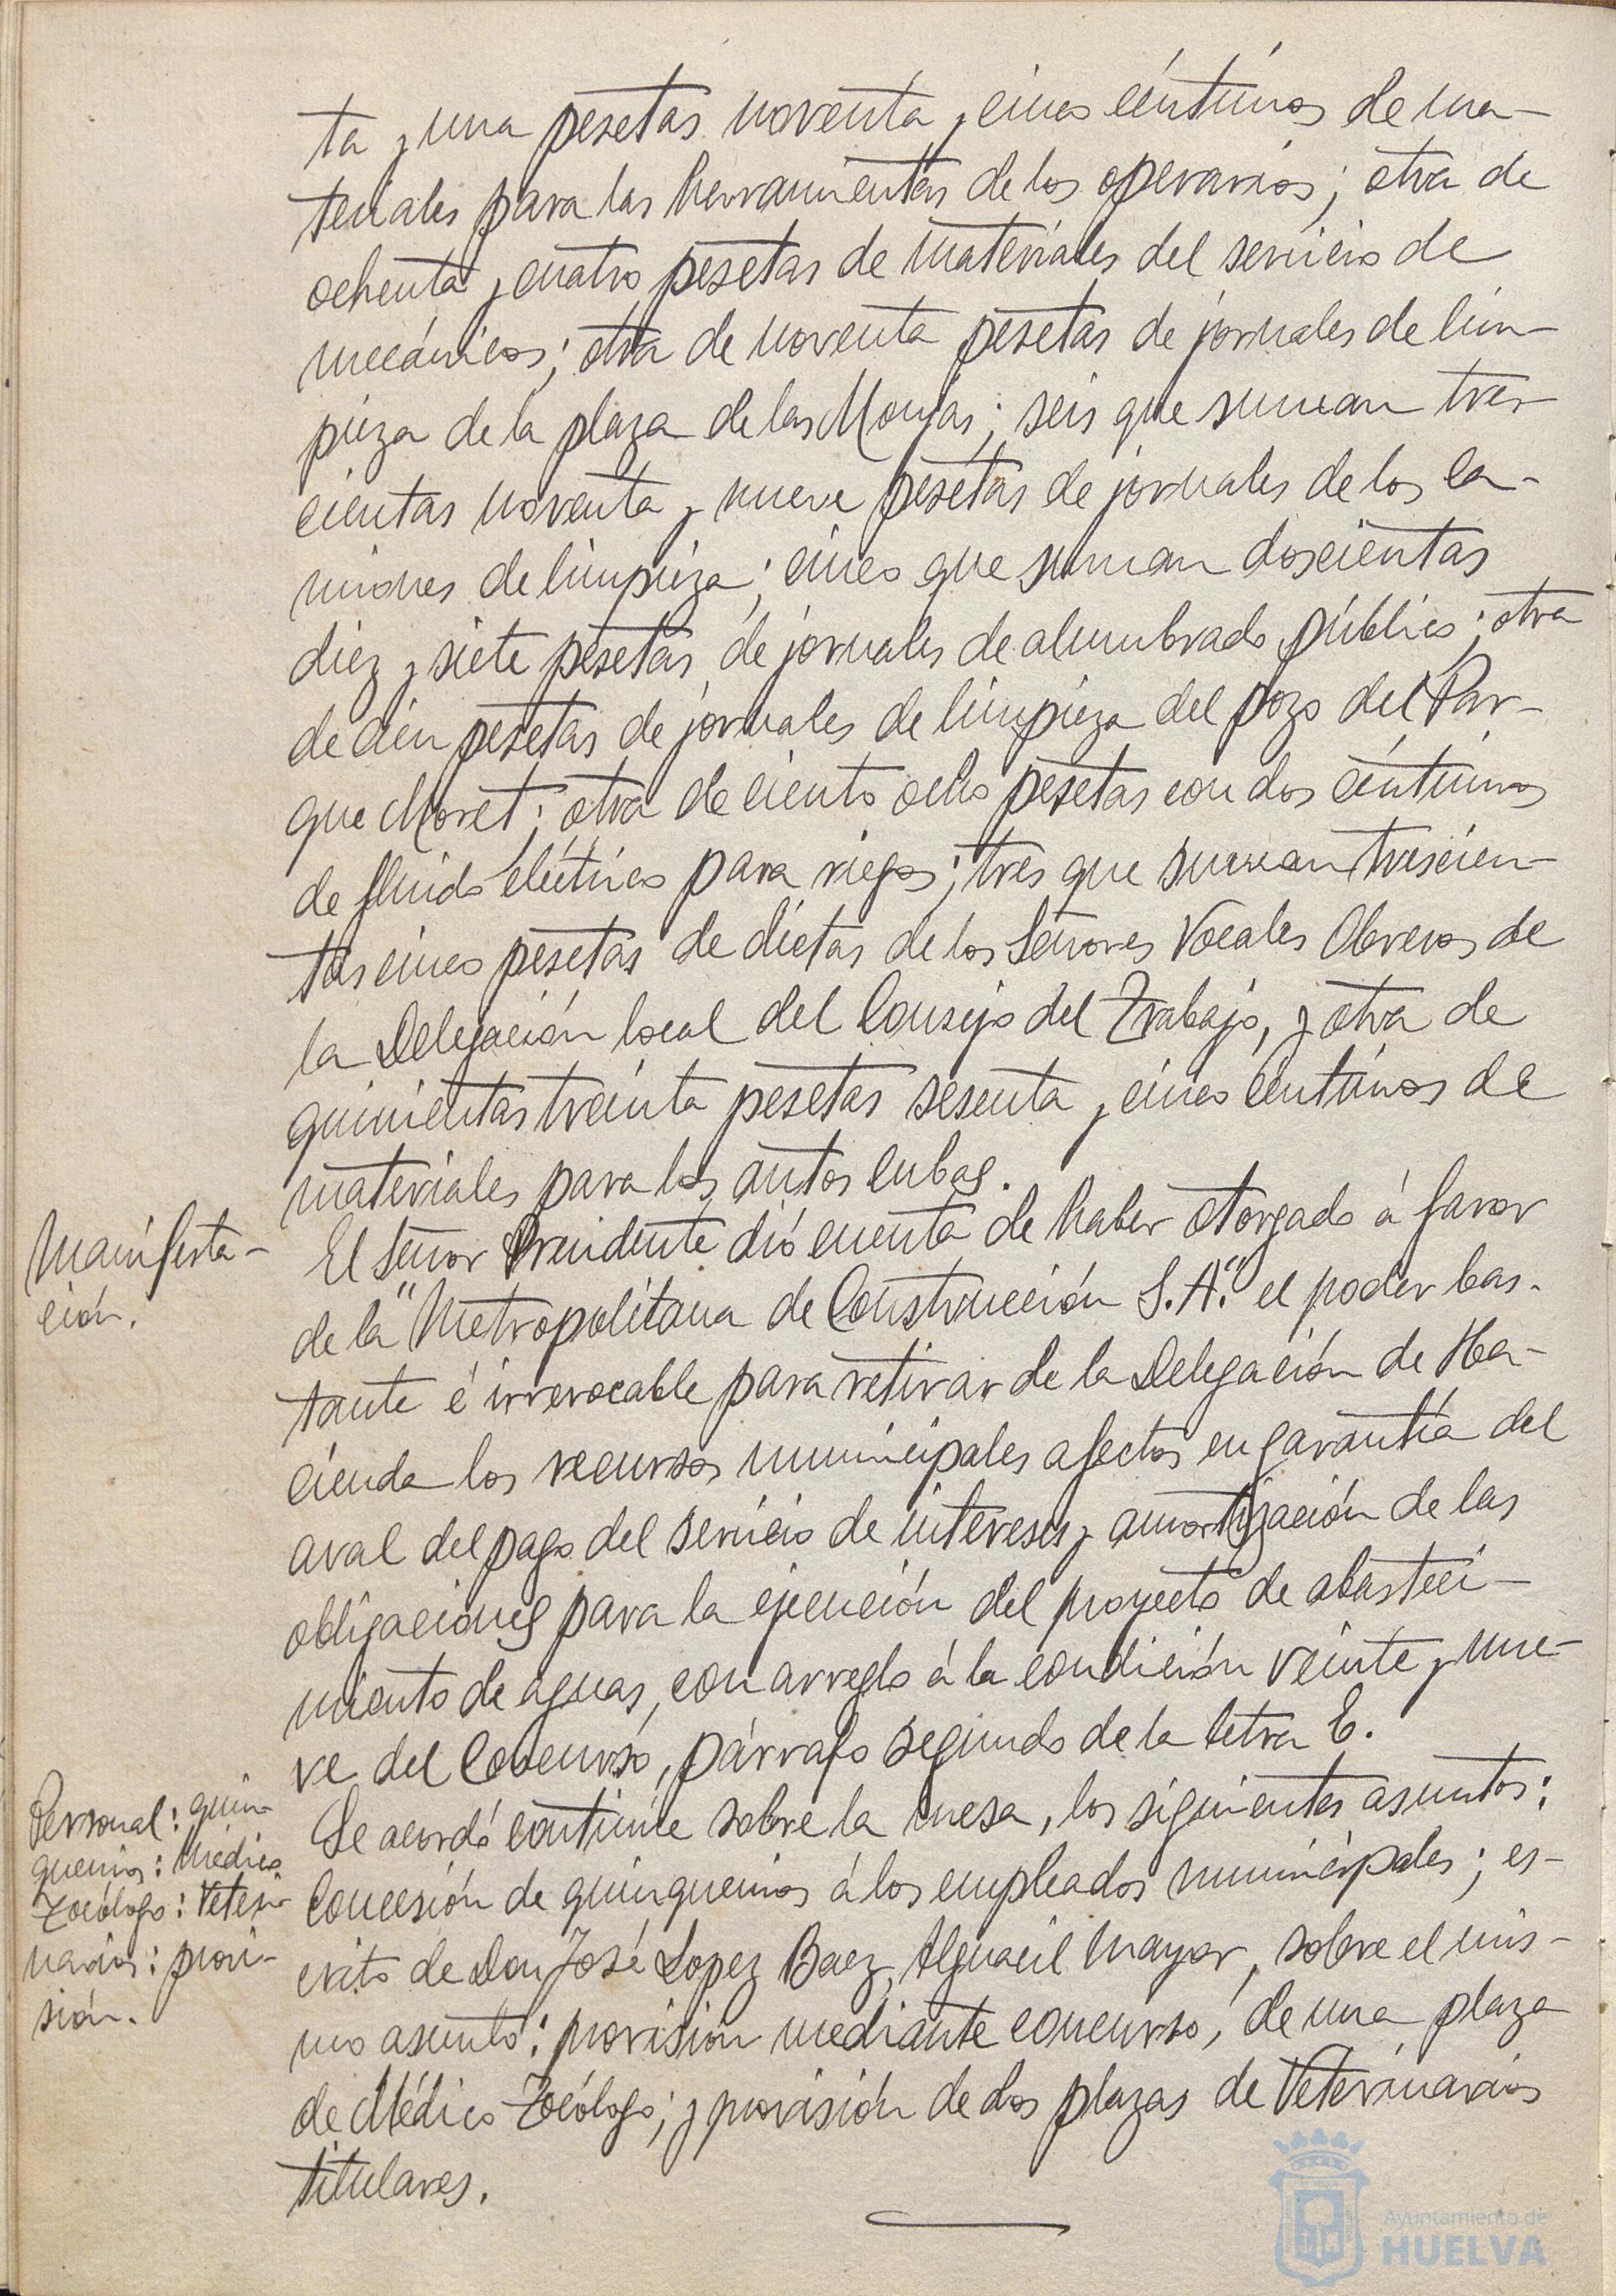 ta y una pesetas noventa y cinco céntimos de ma-
teriales para las herramientas de los operarios; otra de
ochenta y cuatro pesetas de materiales del servicio de
mecánicos; otra de noventa pesetas de jornales de lim-
pieza de la plaza de las Monjas; seis que suman tres-
cientas noventa y nueve pesetas de jornales de los ca-
miones de limpieza; cinco que suman doscientas
diez y siete pesetas de jornales de alumbrado público; otra
de cien pesetas de jornales de limpieza del pozo del Par-
que Moret; otra de ciento ocho pesetas con dos céntimos
de fluido eléctrico para riegos; tres que suman trescien-
tas cinco pesetas de dietas de los Señores Vocales Obreros de
la Delegación local del Consejo del Trabajo, y otra de
quinientas treinta pesetas sesenta y cinco céntimos de
materiales para los autos cubas.
Manifesta-
ción.
El señor Presidente dió cuenta de haber otorgado á favor
de la "Metropolitana de Construcción S.A." el poder bas-
tante é irrevocable para retirar de la Delegación de Ha-
cienda los recursos municipales afectos en garantía del
aval del pago del servicio de intereses y amortización de las
obligaciones para la ejecución del proyecto de abasteci-
miento de aguas, con arreglo á la condición veinte y nue-
ve del Concurso, párrafo segundo de la letra E.
Personal: quin-
quenios: Médico
Zoólogo: Veteri-
narios: provi-
sión.
Se acordó continúe sobre la mesa, los siguientes asuntos:
Concesión de quinquenios á los empleados municipales; es-
crito de Don José Lopez Baez, Alguacil Mayor, sobre el mis-
mo asunto: provisión mediante concurso, de una plaza
de Médico Tocólogo; y provisión de dos plazas de Veterinarios
titulares.
Ayuntamiento de
HUELVA